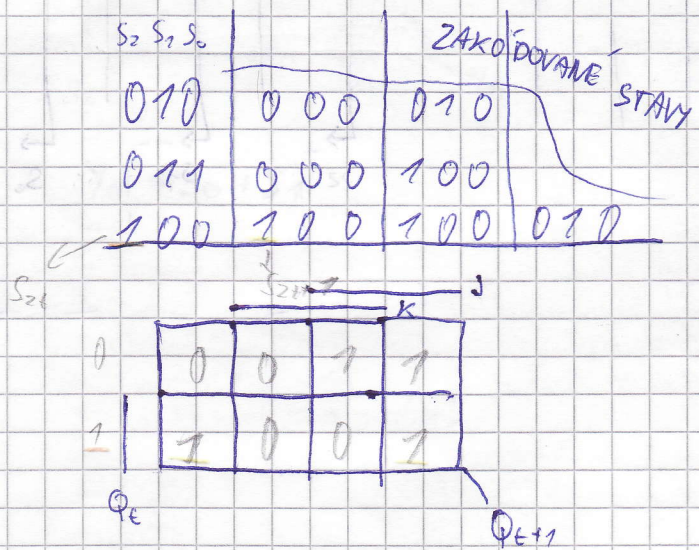 S₂ S₁ S₀ ZAKÓDOVANÉ STAVY
010 000 010
011 000 100
100 100 100 010
S₂ₜ S₂ₜ₊₁ J
K
0 0 0 1 1
1 1 0 0 1
Qₜ Qₜ₊₁